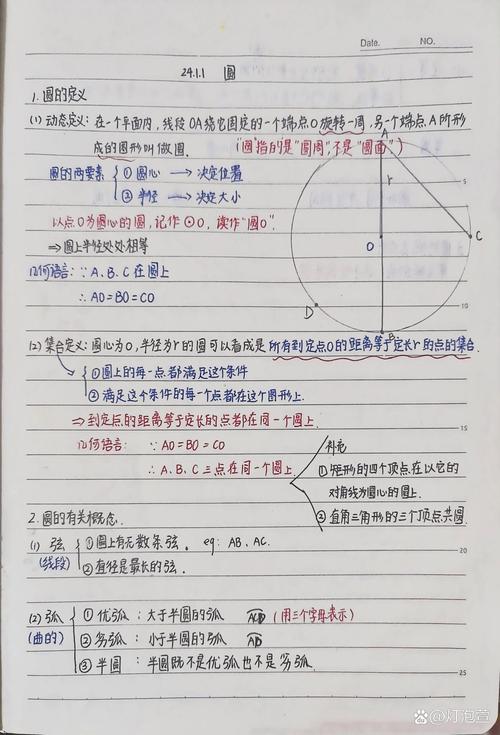 Date. NO.
24.1.1 圆
1. 圆的定义
(1) 动态定义: 在一个平面内, 线段OA绕它固定的一个端点O旋转一周, 另一个端点A所形
成的图形叫做圆. ("圆"指的是"圆周", 不是"圆面")
圆的两要素 ① 圆心 → 决定位置
② 半径 → 决定大小
以点O为圆心的圆, 记作⊙O, 读作"圆O".
⇒圆上半径处处相等
几何语言: ∵A、B、C在圆上
∴AO=BO=CO
A
r
O
C
D
B
5
10
(2) 集合定义: 圆心为O, 半径为r的圆可以看成是所有到定点O的距离等于定长r的点的集合.
①圆上的每一点都满足这个条件
②满足这个条件的每一个点都在这个图形上.
⇒到定点的距离等于定长的点都在同一个圆上.
15
几何语言: ∵AO=BO=CO
∴A、B、C三点在同一个圆上.
补充
①矩形的四个顶点在以它的
对角线为圆心的圆上.
②直角三角形的三个顶点共圆
2. 圆的有关概念.
(1) 弦 ①圆上有无数条弦. eg: AB、AC.
(线段) ②直径是最长的弦.
20
(2) 弧 ① 优弧: 大于半圆的弧 ACD (用三个字母表示)
(曲的) ② 劣弧: 小于半圆的弧 AD
③ 半圆: 半圆既不是优弧也不是劣弧.
25
Baidu@灯泡萱